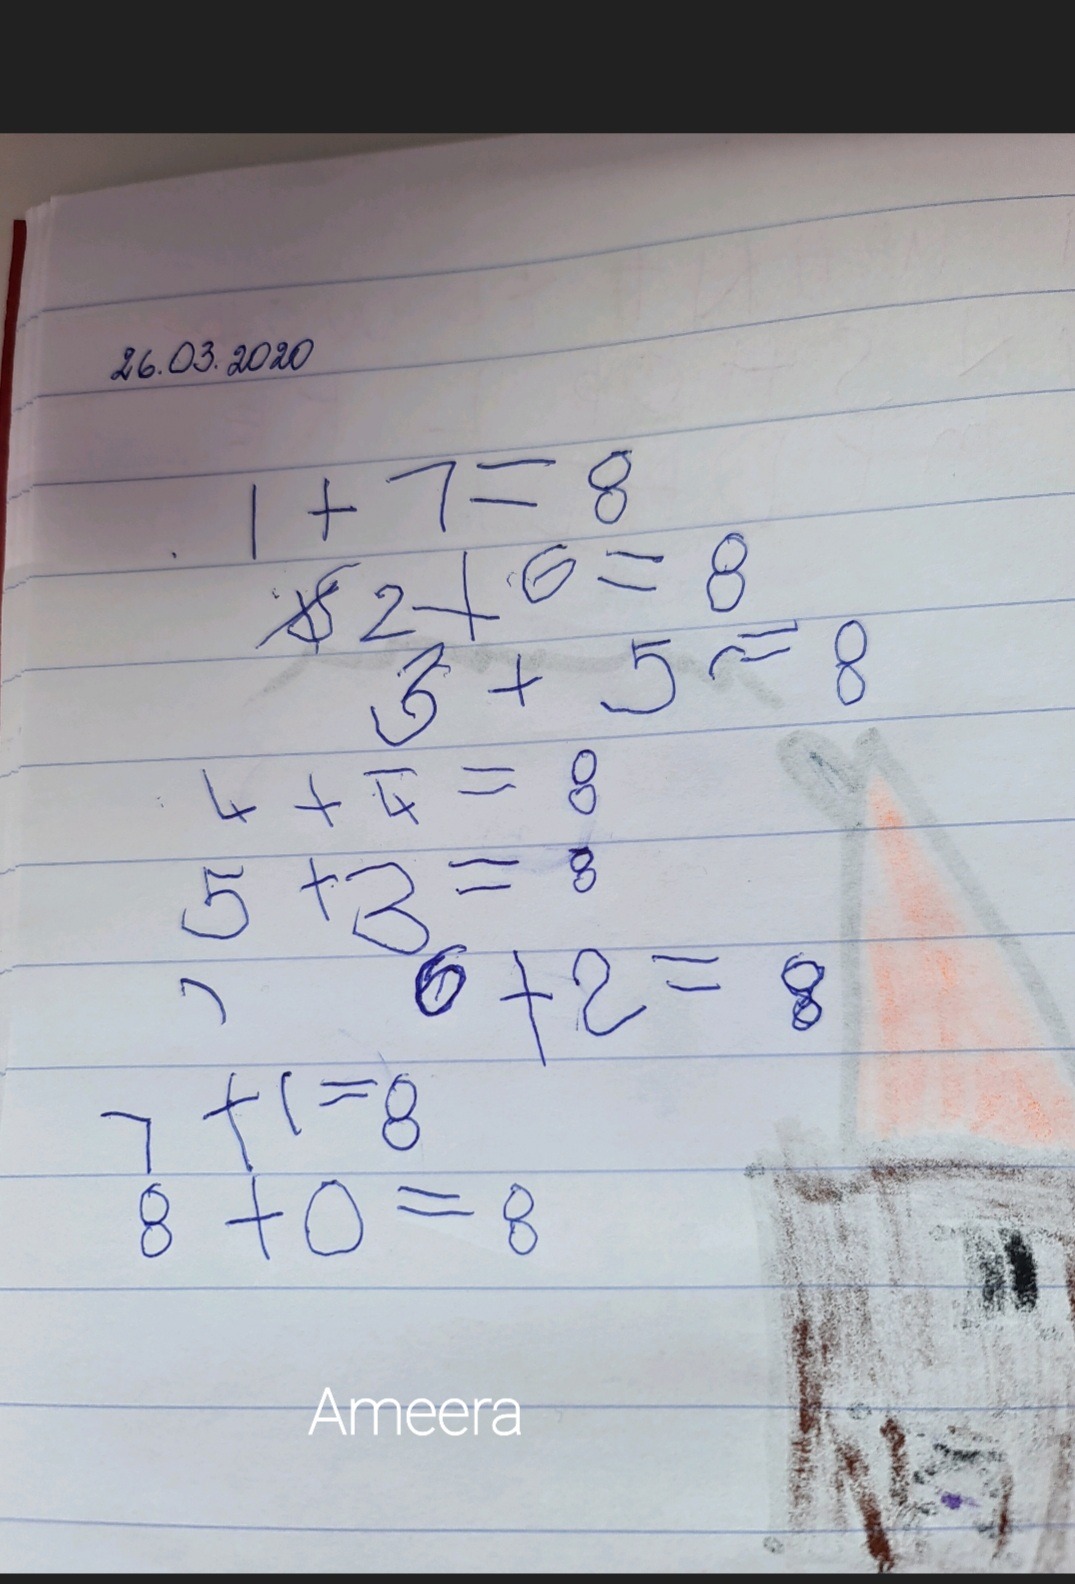 26.03.2020
1 + 7 = 8
2 + 6 = 8
3 + 5 = 8
4 + 4 = 8
5 + 3 = 8
6 + 2 = 8
7 + 1 = 8
8 + 0 = 8
Ameera